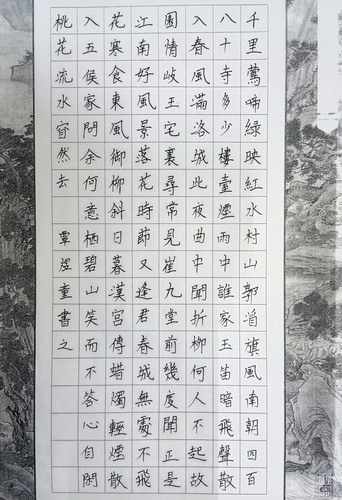 千里鶯啼綠映紅水村山郭酒旗風南朝四百
八十寺多少樓臺煙雨中誰家玉笛暗飛聲散
入春風滿洛城此夜曲中聞折柳何人不起故
園情岐王宅裏尋常見崔九堂前幾度聞正是
江南好風景落花時節又逢君春城無處不飛
花寒食東風御柳斜日暮漢宮傳蜡燭輕煙散
入五侯家問余何意栖碧山笑而不答心自閑
桃花流水窅然去 覃煜童書之